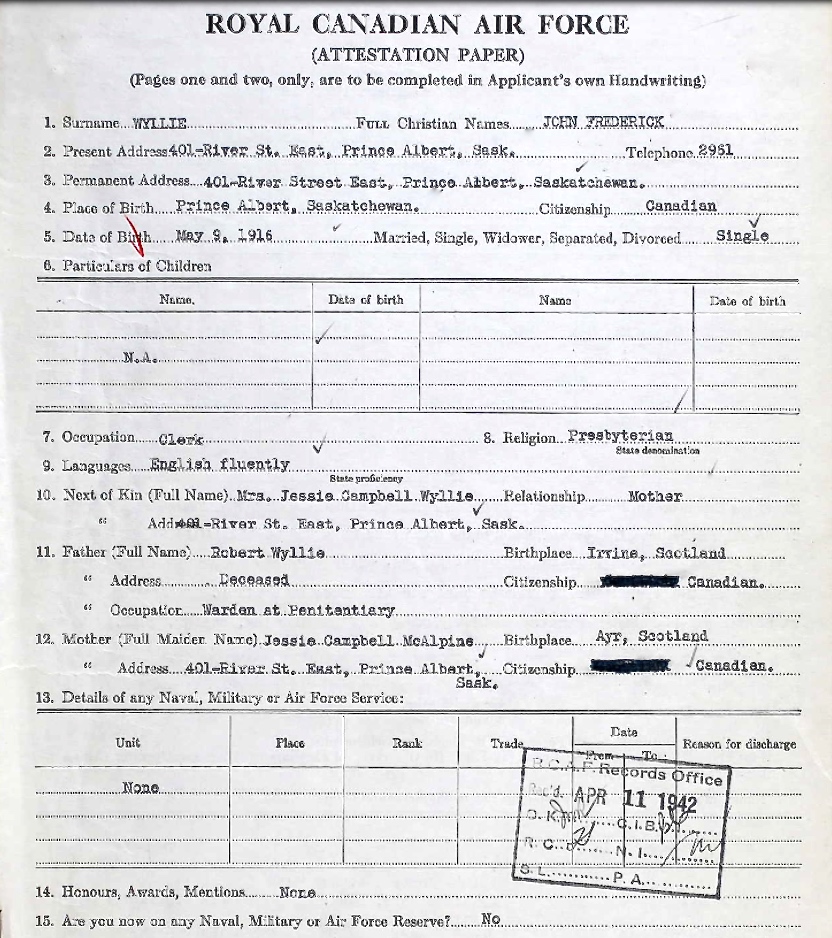 ROYAL CANADIAN AIR FORCE
(ATTESTATION PAPER)
(Pages one and two, only, are to be completed in Applicant's own Handwriting)
1. Surname WYLLIE FULL Christian Names JOHN FREDERICK
2. Present Address 401-River St. East, Prince Albert, Sask. Telephone 2981
3. Permanent Address 401-River Street East, Prince Albert, Saskatchewan.
4. Place of Birth Prince Albert, Saskatchewan. Citizenship Canadian
5. Date of Birth May 9, 1916 Married, Single, Widower, Separated, Divorced Single
6. Particulars of Children
Name. Date of birth Name Date of birth
N.A.
7. Occupation Clerk 8. Religion Presbyterian
State denomination
9. Languages English fluently
State proficiency
10. Next of Kin (Full Name) Mrs. Jessie Campbell Wyllie Relationship Mother
" Add 401-River St. East, Prince Albert, Sask.
11. Father (Full Name) Robert Wyllie Birthplace Irvine, Scotland
" Address Deceased Citizenship Canadian.
" Occupation Warden at Penitentiary
12. Mother (Full Maiden Name) Jessie Campbell McAlpine Birthplace Ayr, Scotland
" Address 401-River St. East, Prince Albert, Citizenship Canadian.
Sask.
13. Details of any Naval, Military or Air Force Service:
Unit Place Rank Trade Date Reason for discharge
From To
None
R.C.A.F. Records Office
Rec'd. APR 11 1942
O.K. C.I.B.
R.C. N.I.
S.L. P.A.
14. Honours, Awards, Mentions None
15. Are you now on any Naval, Military or Air Force Reserve? No